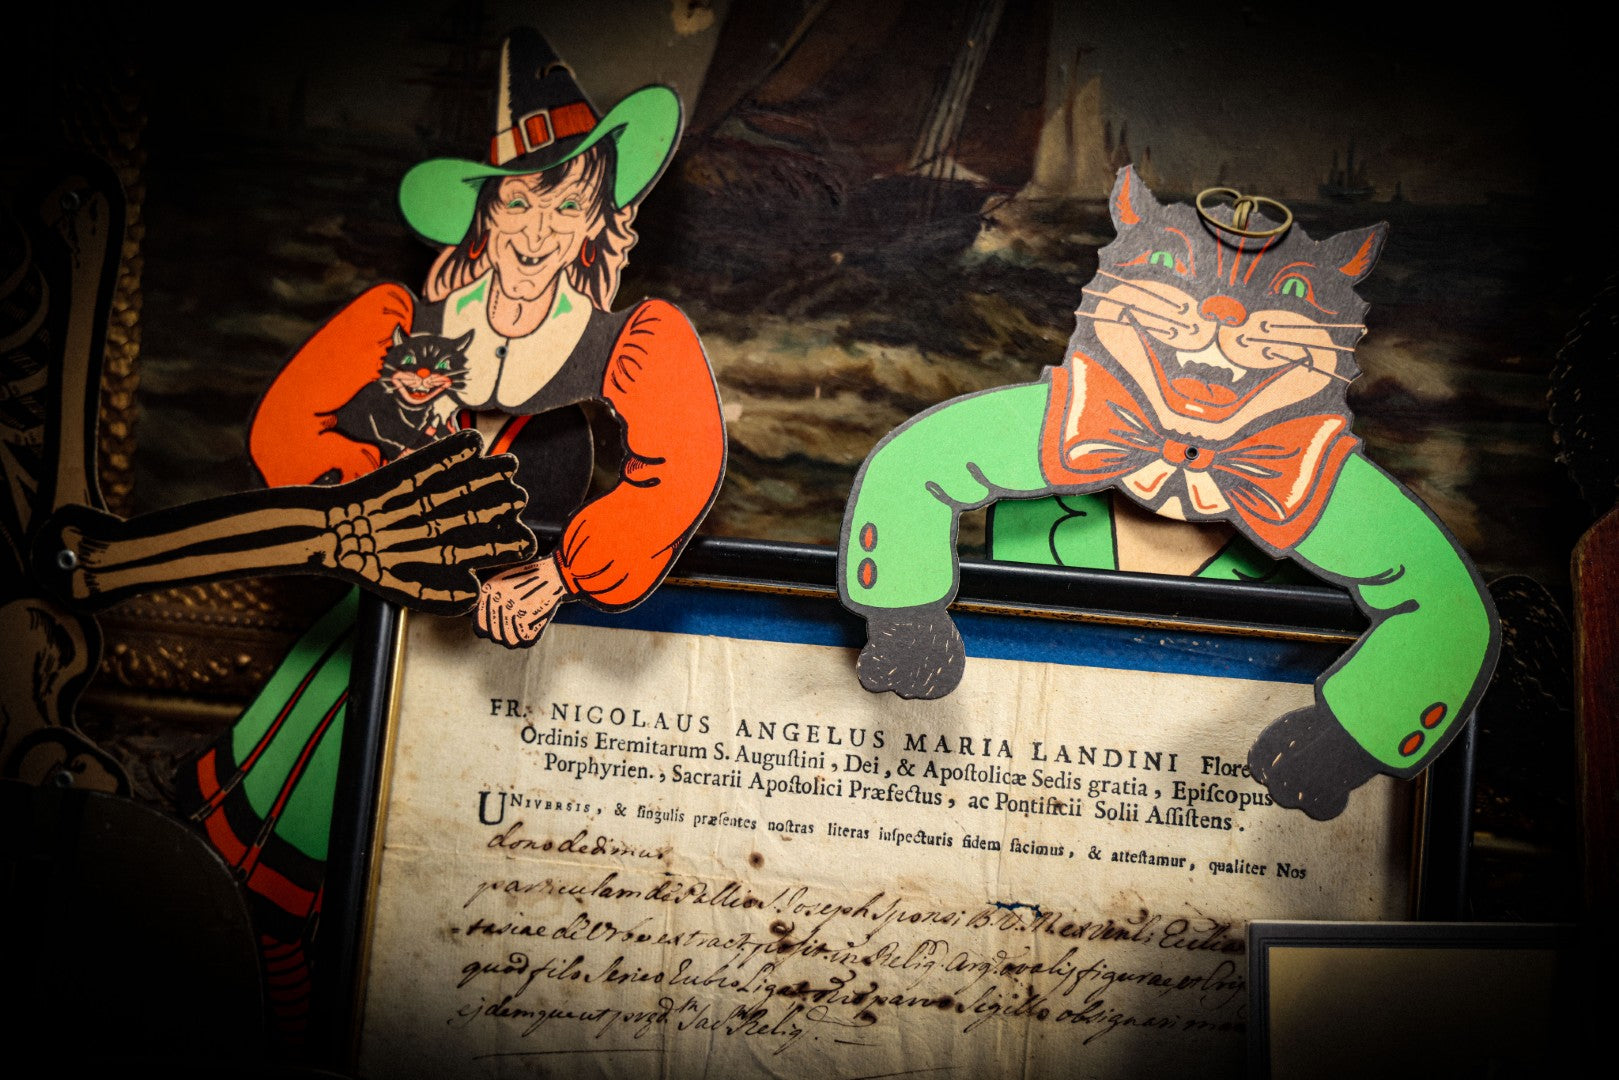 FR. NICOLAUS ANGELUS MARIA LANDINI Flore
Ordinis Eremitarum S. Auguſtini, Dei, & Apoſtolicæ Sedis gratia, Epiſcopus
Porphyrien., Sacrarii Apoſtolici Præfectus, ac Pontificii Solii Aſſiſtens.
UNIVERSIS, & ſingulis præſentes noſtras literas inſpecturis fidem facimus, & atteſtamur, qualiter Nos
dono dedimus
particulam de Pallio S. Joseph Sponsi B.V.M. ex Venli Eccliae
-tasiae de Urbe extract. posit. in Reliq. arg. ovalis figurae, et
quod filo serico rubro Ligat. parvo Sigillo obsignari
ejdemque ut Sac Reliq.